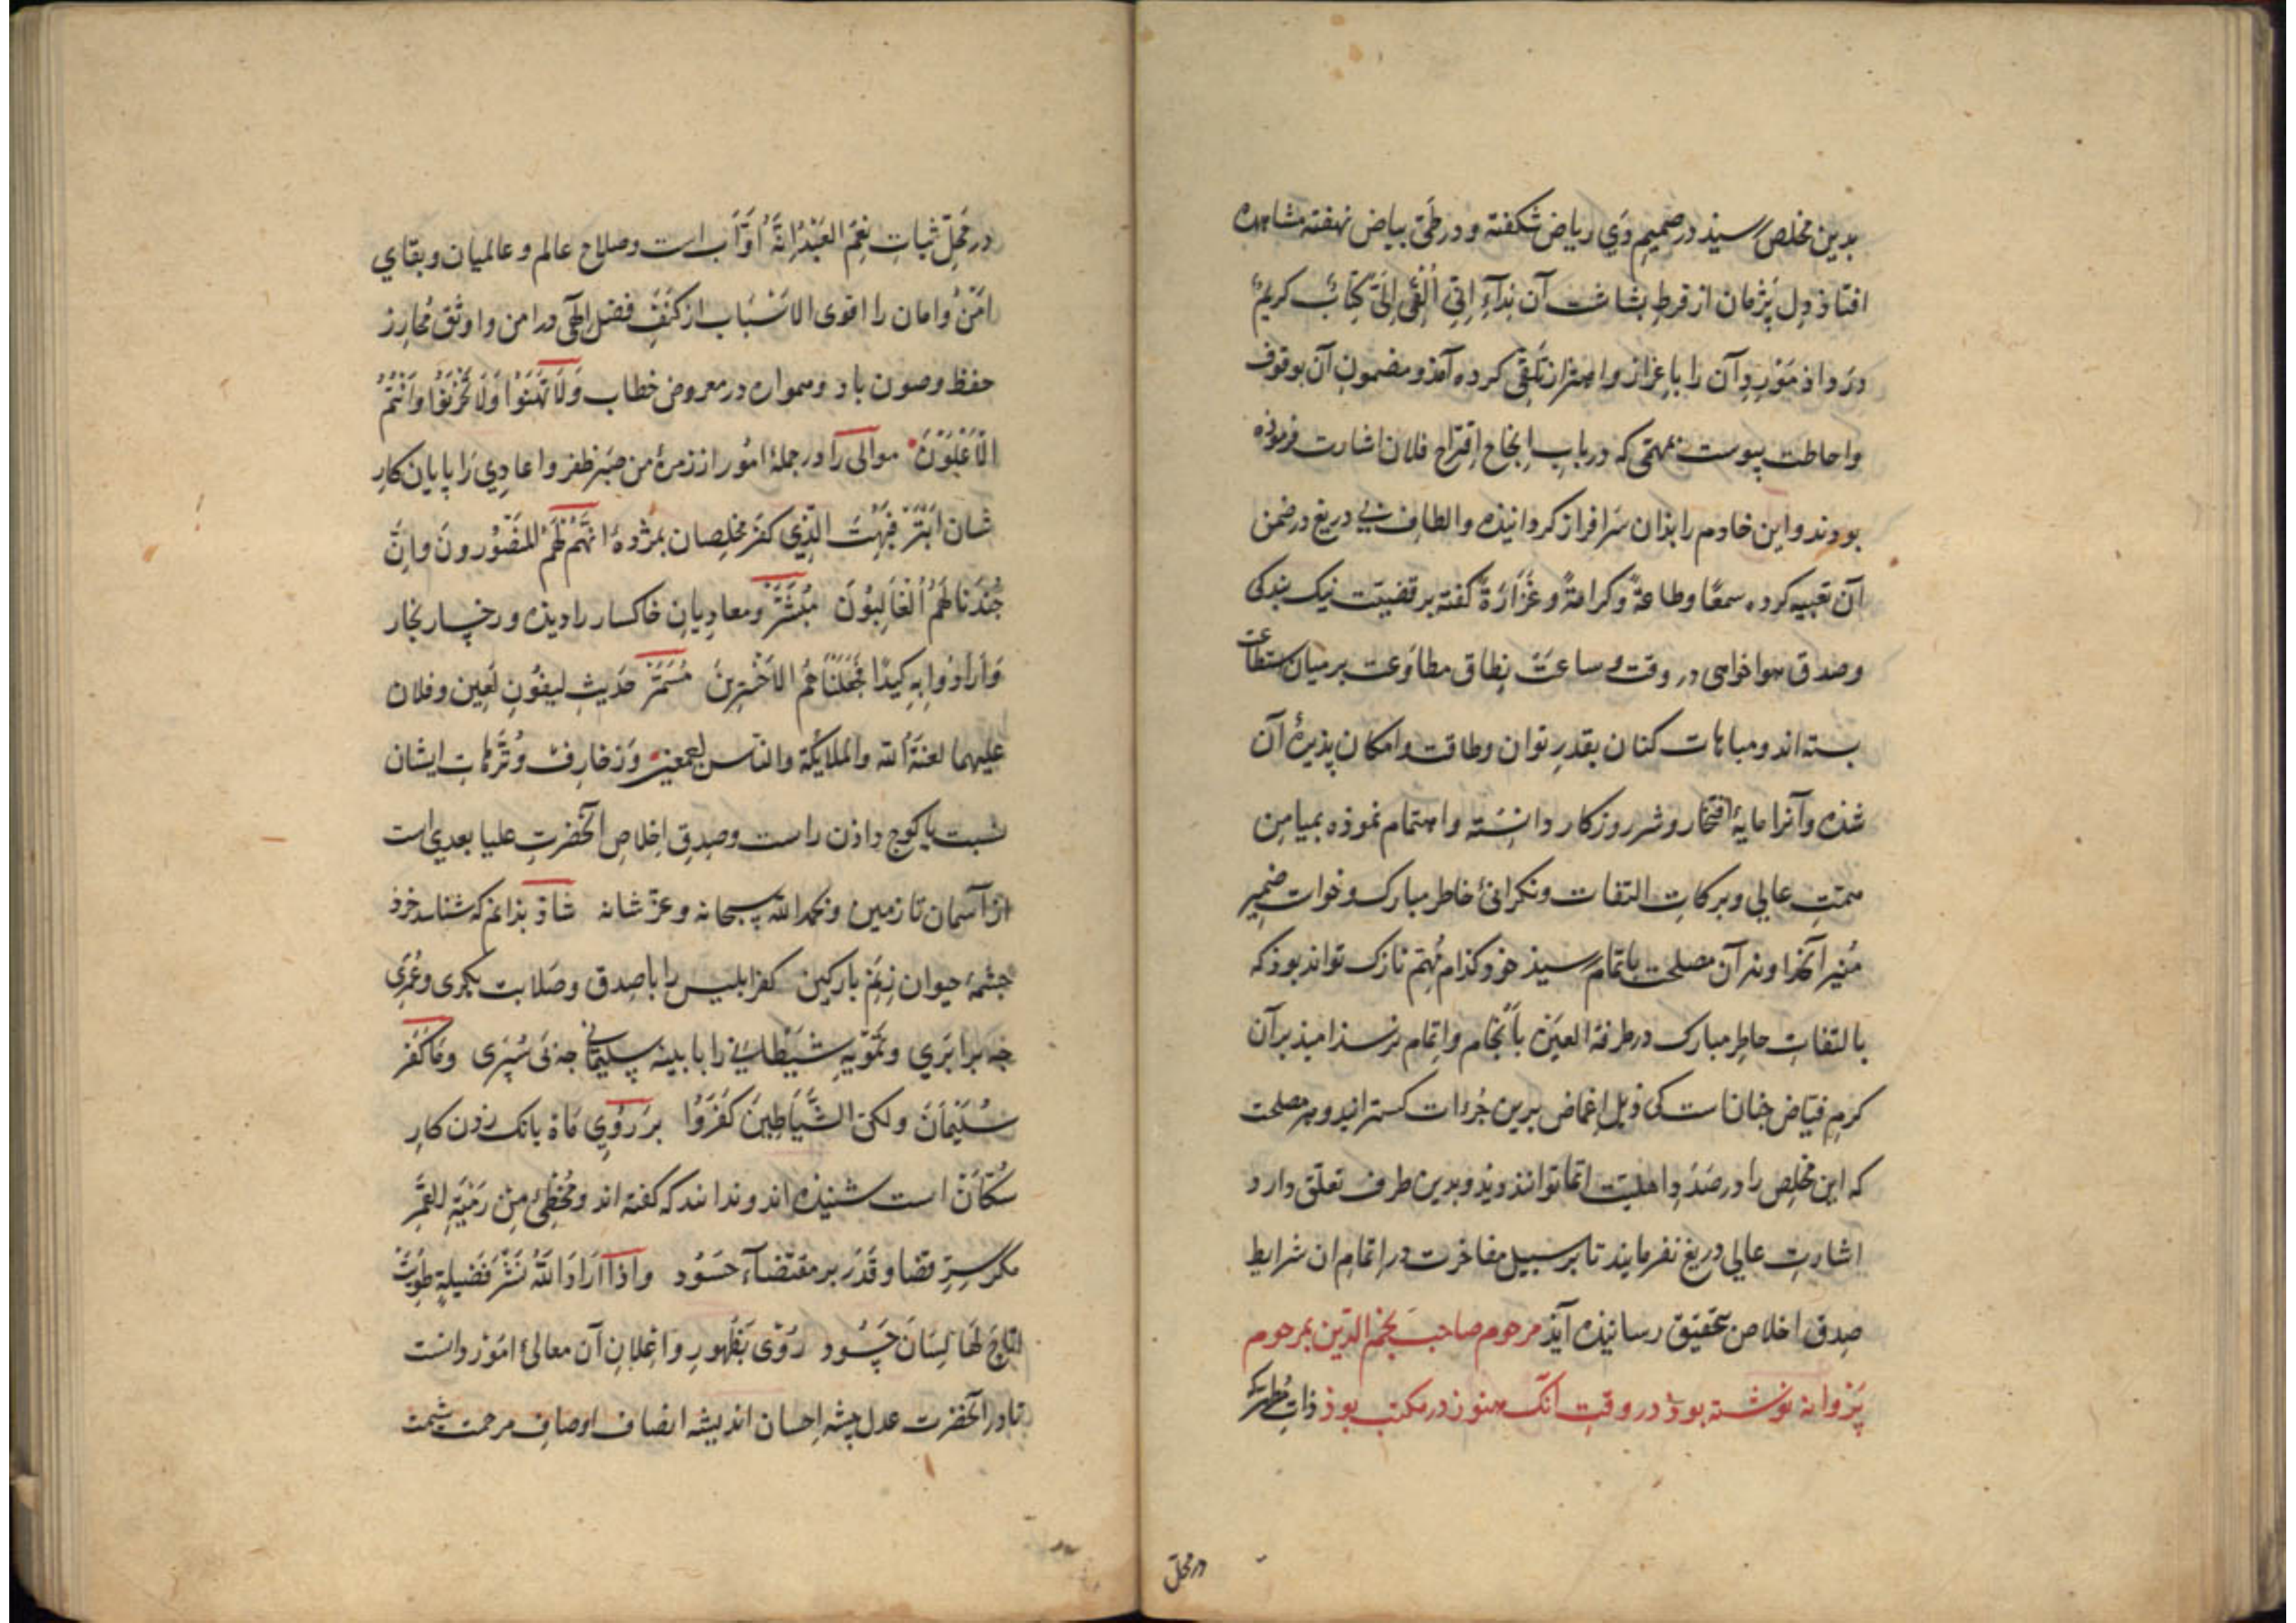 بدین مخلص رسیذ در صمیم دَی ریاض شکفته و در طَیّ بیاض نهفته مشاهده
افتاذ دل پَژمان از فرطِ بشاشت آن نِدآءِ اِنّی اُلْقِیَ اِلَیَّ کِتَابٌ کریمٌ
در داذ مَوْرِدِ آن را باِعزاز و اهتزاز تلَقّی کرده آمذ و مضمونِ آن بوقوف
و احاطت پیوست مهمّی که در بابِ اِنجاحِ اِقتراحِ فلان اشارت فرموذه
بودند و این خادم را بذان سَرافراز کردانیذه و الطافِ بی دریغ در ضمن
آن تعبیه کرده سمعًا وطاعةً وکرامةً و غَزَارَةً کفته بر قضیّت نیک بندکی
وصدق هواخواهی در وقت و ساعَت نِطاق مطاوَعت بر میان استطاعت
بسته اند و مباهات کنان بقدرِ توان و طاقت و امکان پذیرهٔ آن
شذه وآنرا مایهٔ افتخار و شرر روزکار دانسته و اهتمام نموذه بمیامِن
همّتِ عالی و برکاتِ التفات و نکرانیٔ خاطر مبارک و ضمیر
مُنیر آنخداوند آن مصلحت باتمام رسیذ خوذ کذام مُهِمّ نازک تواند بوذ که
بالتفاتِ خاطِر مبارک در طرفة العین بِاَنجام و اِتمام نرسذ امیذ بر آن
کرم فیّاض جنانست کی ذیل اِغماض برین جُرات کستراند و هر مصلحت
که این مخلِص را در صَدَدِ اهلیّت اتمام توانذ دیذ و بدین طرف تعلّق دارد
اشارتِ عالی دریغ نفرمایند تا بر سبیل مفاخرت در اتمام ان شرایط
صِدق اخلاص بتحقیق رسانیذه آیذ مرحوم صاحب نجم الدین بمرحوم
پَرْوانه نوشته بوذ در وقتِ آنک هنوز در مکتب بوذ ذاتِ مُطهّر که
در محل
در مَحَلِّ ثباتِ نِعْمَ العَبْدُ اِنَّهُ اَوَّاب است و صلاح عالم و عالمیان و بقای
امْن و امان را اقوی الاَسْبَاب از کَنَفِ فضل الهی در امن و اوثق مَحارِز
حفظ وصون باد و همواره در معروض خطاب وَلَا تَهِنُوا وَلَا تَحْزَنُوا وَاَنْتُمُ
الْاَعْلَوْنَ موالی را در جملهٔ امُور از زمرهٔ من صَبَرَ ظفر و اعادِی را پایان کارِ
شان اَبْتَر فَبُهِتَ الَّذِی کفَرَ مخلِصان بمژدهٔ اِنَّهُمْ لَهُمُ المَنْصُورونَ واِنَّ
جُنْدَنَا لَهُمُ الْغَالِبُونَ مُبَشَّرْ و معادِیانِ خاکسار را دیذه و رخسار بخار
وَاَرَادُوا بِهِ کَیدًا فَجَعَلْنَاهُمُ الاَخْسَرِینَ مُسَمَّرْ حَدیثِ لیفُونِ لَعِین و فلان
علیهما لعنةُ الله والملایکة والناس اجمعین وَزخارِف و تُرَّهاتِ ایشان
نسبت با کوج داذن راست وصِدقِ اِخلاصِ آنحضرتِ علیا بعدی است
از آسمان تا زمین و بحمد الله سبحانه و عزّ شانه شاذ بذانم که شناسد خرذ
جشمهٔ حیوان زنَمِ بارکین کفر ابلیس را با صِدق و صَلابت بکری و عُمَری
جه برابَری و تَمْویهِ شیْطانی را با بینه سلیمانی جه نی سُپَری و مَا کَفَرَ
سُلَیْمَانُ ولکنّ الشَّیَاطِینَ کَفَرُوا بر رُویِ مَاه بانک زدن کارِ
سُکّان است شنیذه اند و ندانند که کفته اند و مُخْطِیٌٔ مِنْ رَمْیَةِ القَمَر
مکر سِرِّ قضا و قَدَر بر مقتضآءِ حَسُود وَاِذَا اَرَادَ اللّهُ نَشْرَ فَضِیلَةٍ طُوِیَتْ
اَتَاحَ لَهَا لِسَانَ حَسُود رُوْی بِظُهورِ و اِعْلانِ آن معالیٔ امُوْر دانست
تا در آنحضرت عدل پیشه اِحسان اندیشه انصاف اوصافِ مرحمت شیمت